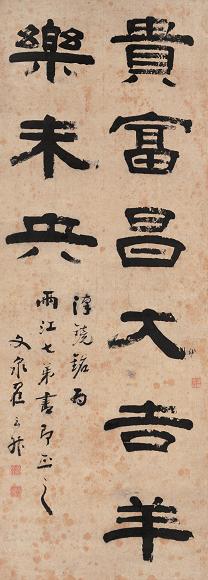 貴富昌大吉羊
樂未央
漢鏡銘為
兩江七弟書即正之
文泉翟云升